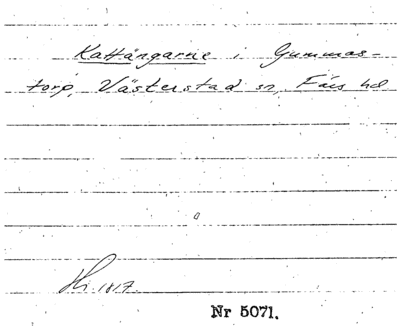 Kattängarne i Gummas-
torp, Västerstad sn, Färs hd
Hi. 1817.
Nr 5071.